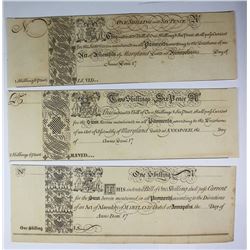 No
ONE SHILLING and SIX PENCE No
This indented Bill of One Shilling & Six pence shall pass Current
for the Sum herein mentioned in all Payments according to the Directions of an
Act of Assembly of Maryland Dated at Annapolis Day of
Anno Dom: 17
1 Shilling & 6 Pence
Two Shillings Six Pence No
This indented Bill of Two Shillings & Six pence shall pass Current
for the Sum herein mentioned in all Payments according to the Directions
of an Act of Assembly of Maryland Dated at ANNAPOLIS. the Day of
Anno Dom: 17
2 Shillings & 6 Pence
No
One Shilling
THIS indented Bill of One Shilling shall pass Current
for the Sum herein mentioned in all Payments according to the Directions
of an Act of Assembly of MARYLAND Dated at Annapolis the Day of
Anno Dom: 17
One Shilling